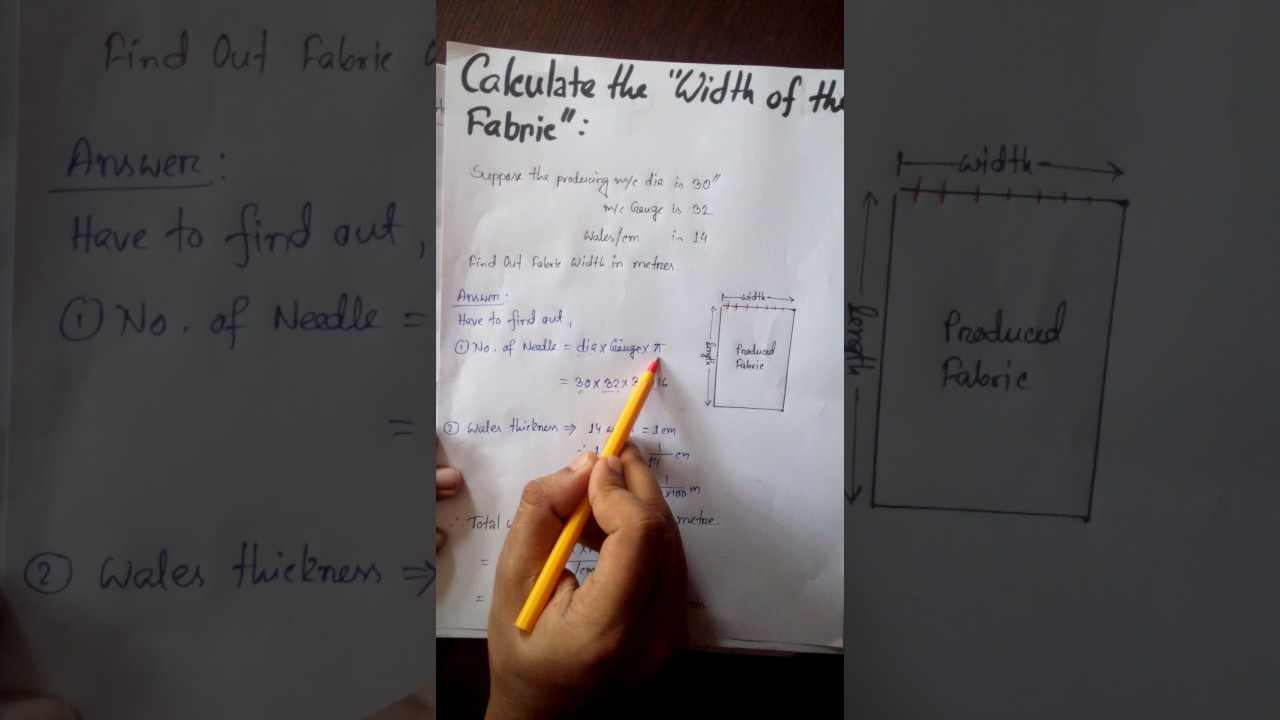 Calculate the "Width of the
Fabric":
Suppose the producing m/c dia is 30"
m/c Gauge is 32
Wales/cm is 14
Find Out Fabric Width in metres.
Answer:
Have to find out,
① No. of Needle = dia x Gauge x π
= 30 x 32 x 3
② Wales thickness ⇒ 14 = 1 cm
∴ 1
1/14 cm
x100 m
∴ Total metre.
=
/cm
=
width
Length
Produced
Fabric
Find Out Fabric
Answer:
Have to find out,
① No. of Needle =
=
② Wales thickness ⇒
width
Length
Produced
Fabric